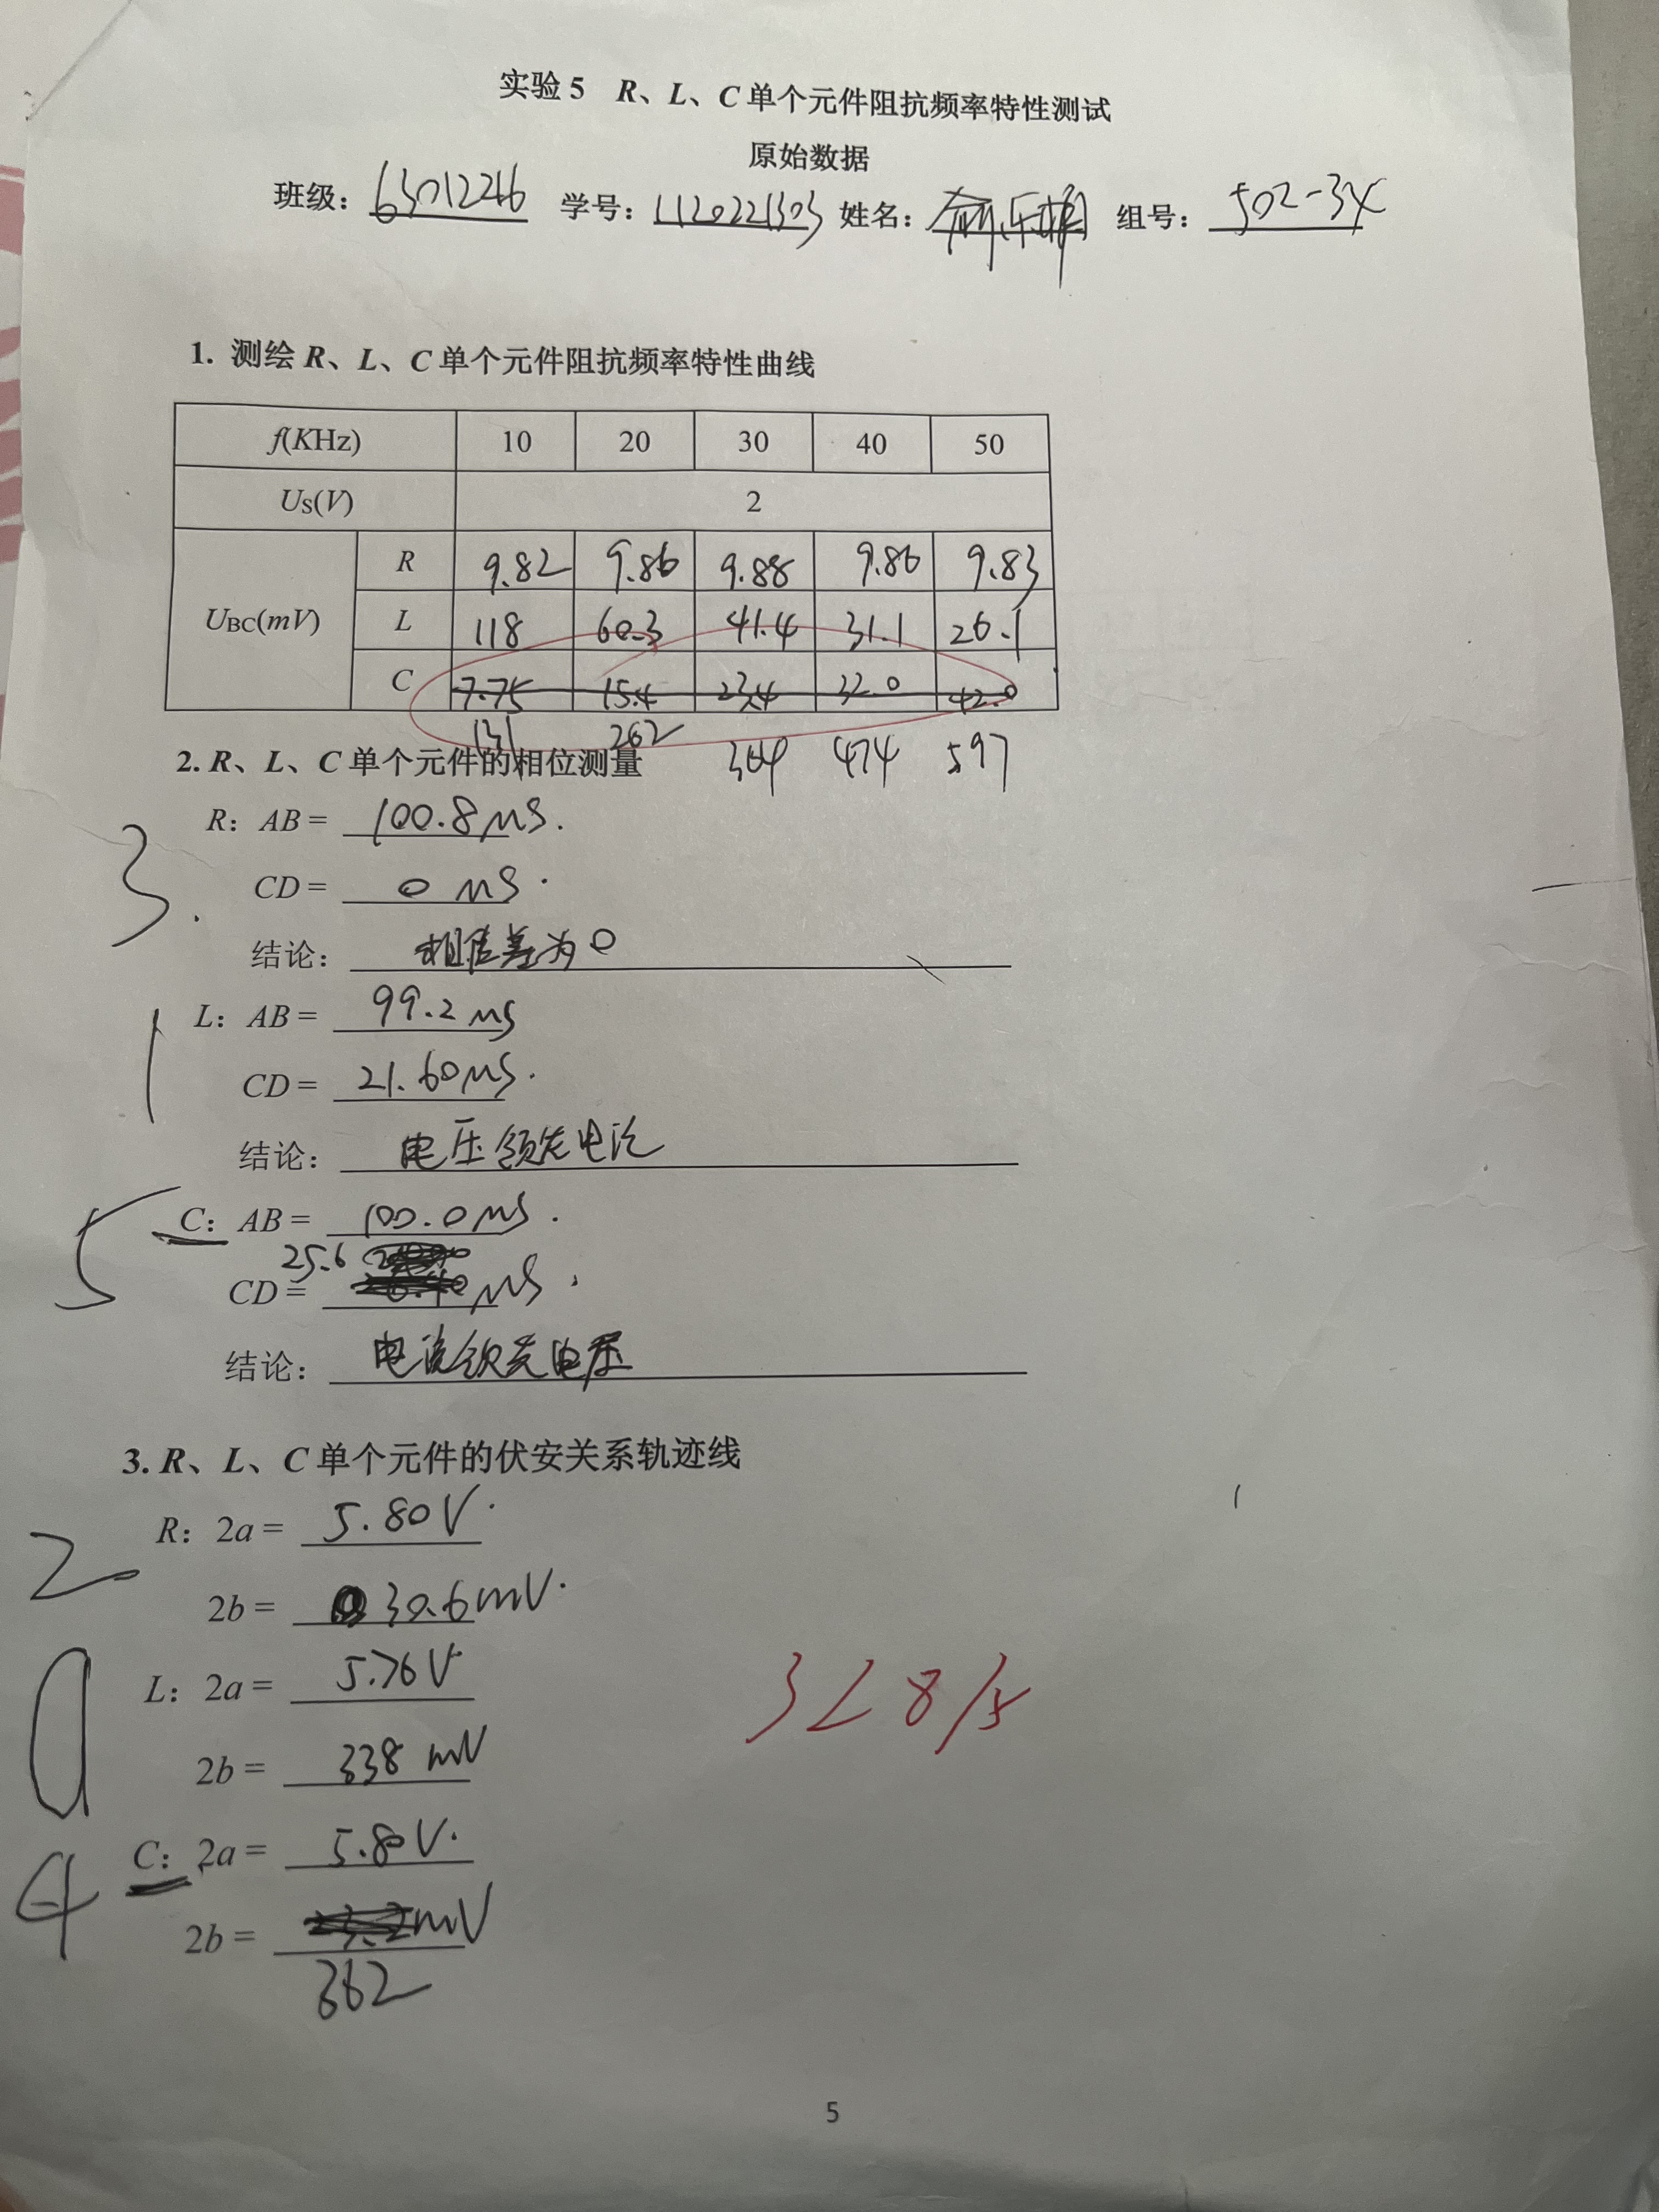 实验 5 R、L、C 单个元件阻抗频率特性测试
原始数据
班级: 63012246 学号: 1120221303 姓名: 组号: 502-34
1. 测绘 R、L、C 单个元件阻抗频率特性曲线
f(KHz) 10 20 30 40 50
US(V) 2
UBC(mV)
R 9.82 9.86 9.88 9.86 9.83
L 118 60.3 41.4 31.1 26.1
C 7.75 15.4 23.4 32.0 42.0
131 262 364 474 597
2. R、L、C 单个元件的相位测量
R: AB = 100.8 μs.
3.
CD = 0 μs.
结论: 相位差为0
L: AB = 99.2 μs
1
CD = 21.60 μs.
结论: 电压领先电流
C: AB = 100.0 μs.
5
25.6
CD = μs.
结论: 电流领先电压
3. R、L、C 单个元件的伏安关系轨迹线
R: 2a = 5.80V.
2
2b = 30.6mV.
L: 2a = 5.76V
0
2b = 338 mV
328/5
C: 2a = 5.80V.
4
2b = mV
362
5